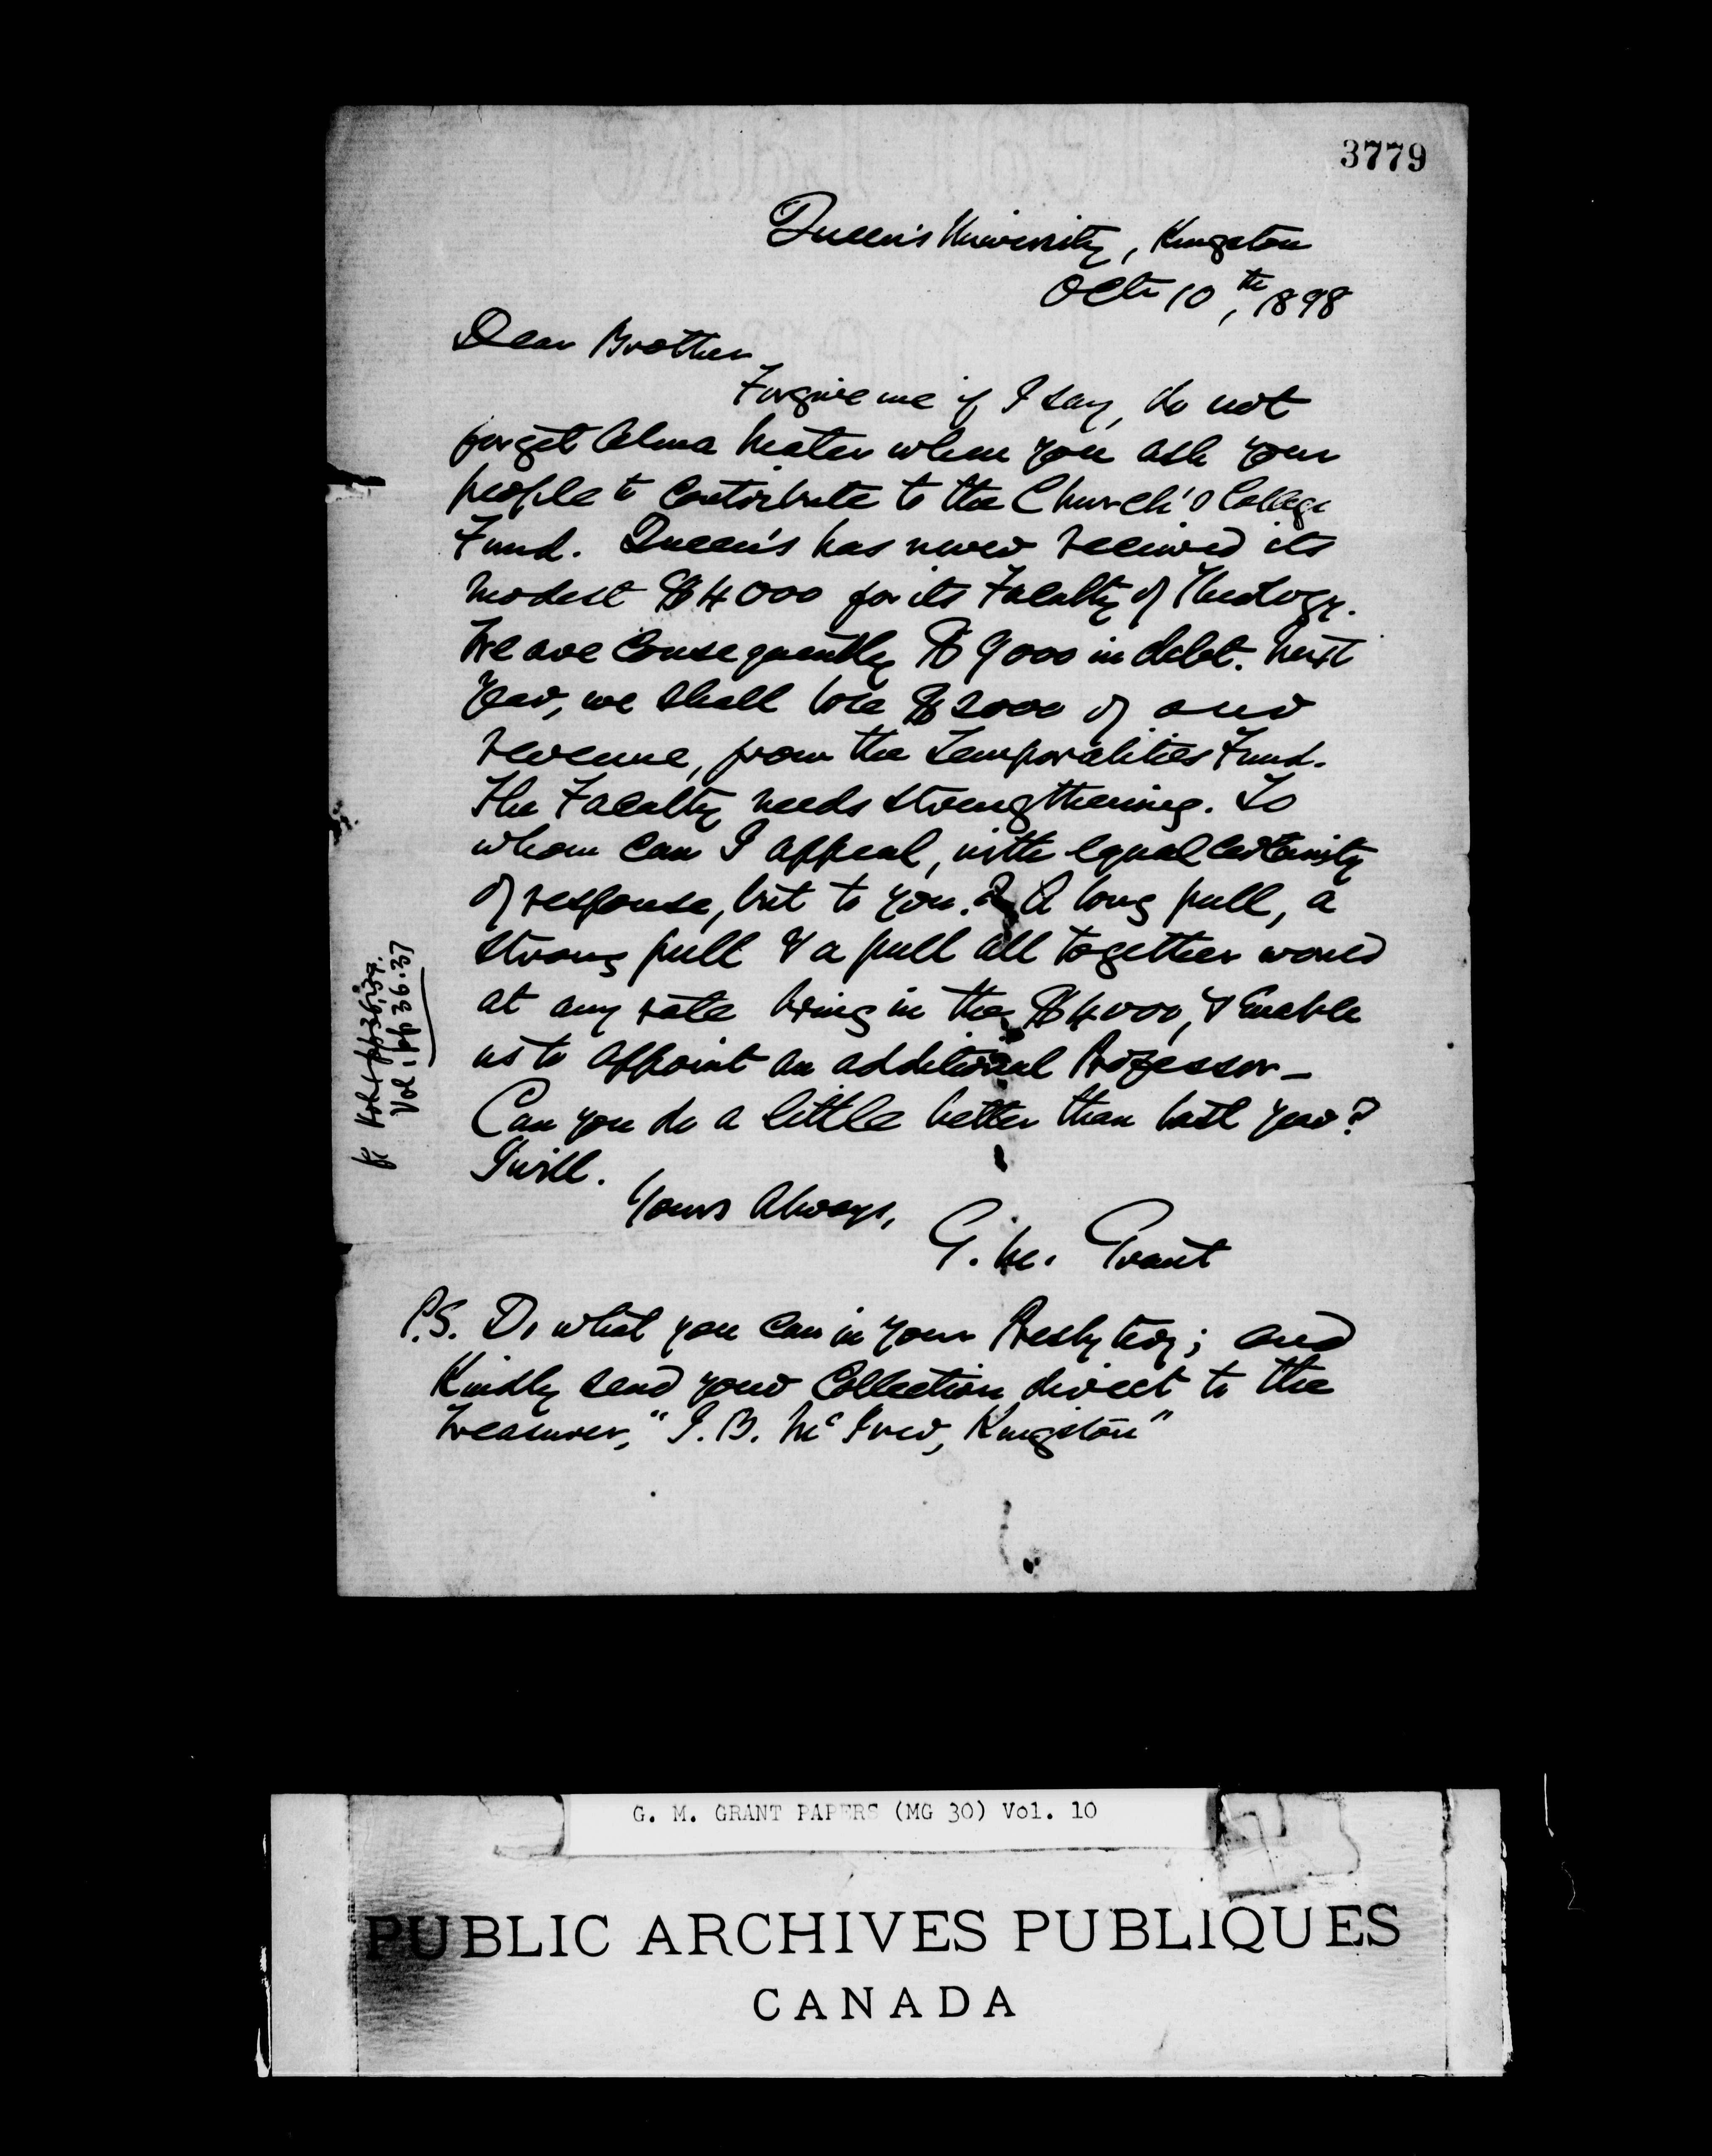 3779
Queen's University, Kingston
Octr 10th, 1898
Dear Brother
Forgive me if I say, do not
forget Alma Mater when you ask your
people to contribute to the Church's College
Fund. Queen's has never received its
modest $4000 for its Faculty of Theology.
We are consequently $9000 in debt. Next
year, we shall lose $2000 of our
revenue, from the Temporalities Fund.
The Faculty needs strengthening. To
whom can I appeal, with equal certainty
of response, but to you? A long pull, a
strong pull & a pull all together would
at any rate bring in the $4000, & enable
us to appoint an additional Professor—
Can you do a little better than last year?
I will.
Yours always,
G. M. Grant
P.S. Do what you can in your Presbytery; and
kindly send your Collection direct to the
Treasurer, "J. B. McIver, Kingston"
Vol 1 pp 36.37
G. M. GRANT PAPERS (MG 30) Vol. 10
PUBLIC ARCHIVES PUBLIQUES
CANADA